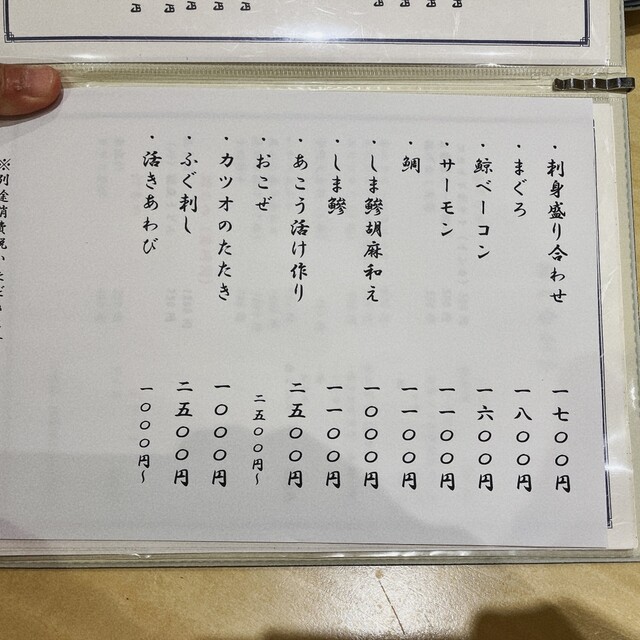 ・刺身盛り合わせ 一七〇〇円
・まぐろ 一八〇〇円
・鯨ベーコン 一六〇〇円
・サーモン 一一〇〇円
・鯛 一一〇〇円
・しま鯵胡麻和え 一〇〇〇円
・しま鯵 一一〇〇円
・あこう活け作り 二五〇〇円
・おこぜ 二五〇〇円〜
・カツオのたたき 一〇〇〇円
・ふぐ刺し 二五〇〇円
・活きあわび 一〇〇〇円〜
※別途消費税い
円
円
円
円
円
円
円
円
円